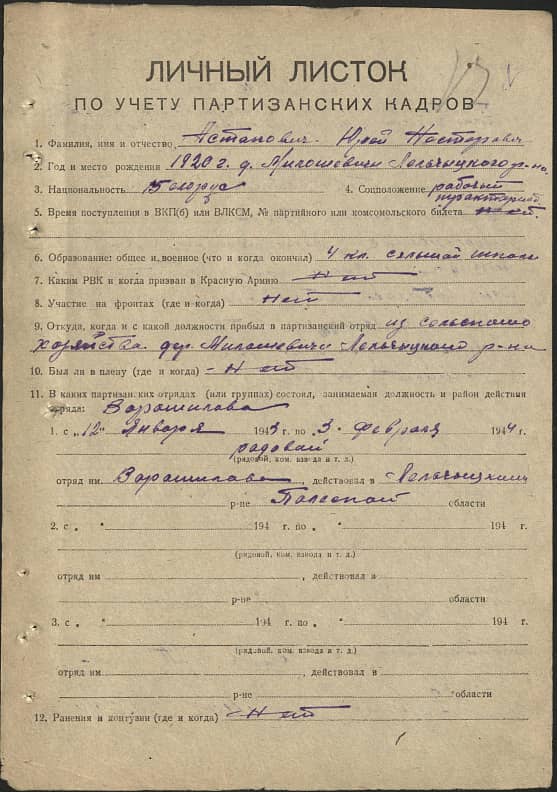 ЛИЧНЫЙ ЛИСТОК
ПО УЧЕТУ ПАРТИЗАНСКИХ КАДРОВ
1. Фамилия, имя и отчество Астапович Юрей Несторович
2. Год и место рождения 1926 г. д. Милошевичи Лельчыцкого р-на.
3. Национальность Белорус 4. Соцположение рабочий
5. Время поступления в ВКП(б) или ВЛКСМ, № партийного или комсомольского билета Нет.
6. Образование: общее и военное (что и когда окончал) 4 кл. сельшай школы
7. Каким РВК и когда призван в Красную Армию Нет
8. Участие на фронтах (где и когда) Нет
9. Откуда, когда и с какой должности прибыл в партизанский отряд из сельского
хозяйства. дер. Милошевичи Лельчыцкого р-на
10. Был ли в плену (где и когда) Нет
11. В каких партизанских отрядах (или группах) состоял, занимаемая должность и район действия
отряда: Ворошилова
1. с „12" Января 1943 г. по „3" февраля 1944 г.
радовой
(рядовой, ком. взвода и т. д.)
отряд им. Ворошилова, действовал в Лельчыцким
р-не Полеской области
2. с „ " 194 г. по „ " 194 г.
(рядовой, ком. взвода и т. д.)
отряд им , действовал в
р-не области
3. с „ " 194 г. по „ " 194 г.
(рядовой, ком. взвода и т. д.)
отряд им , действовал в
р-не области
12. Ранения и контузии (где и когда) Нет